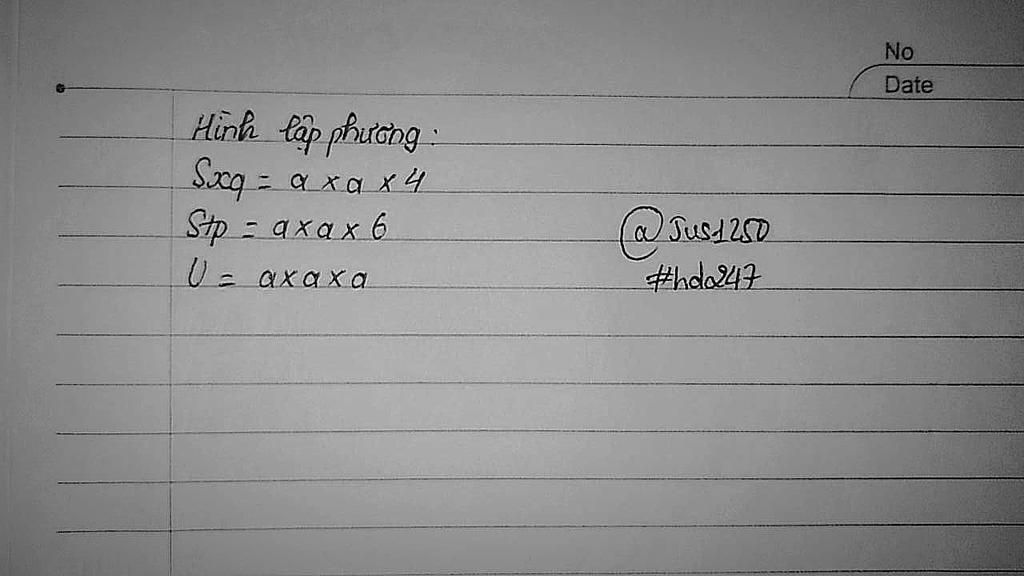 No
Date
Hình lập phương:
Sxq = a x a x 4
Stp = a x a x 6
V = a x a x a
@Jus1250
#hda247